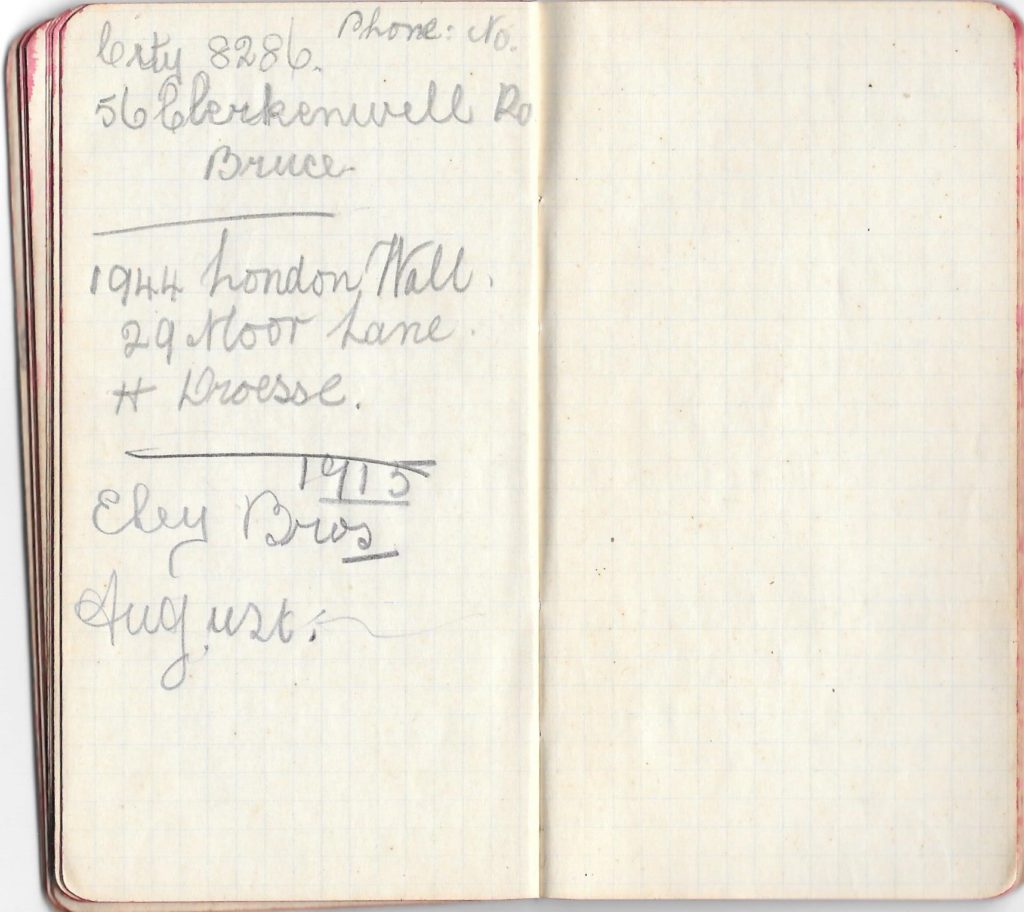 Phone: No.
City 8286.
56 Clerkenwell Rd
Bruce
1944 London Wall.
29 Moor Lane.
H Droesse.
1915
Eley Bros
August.